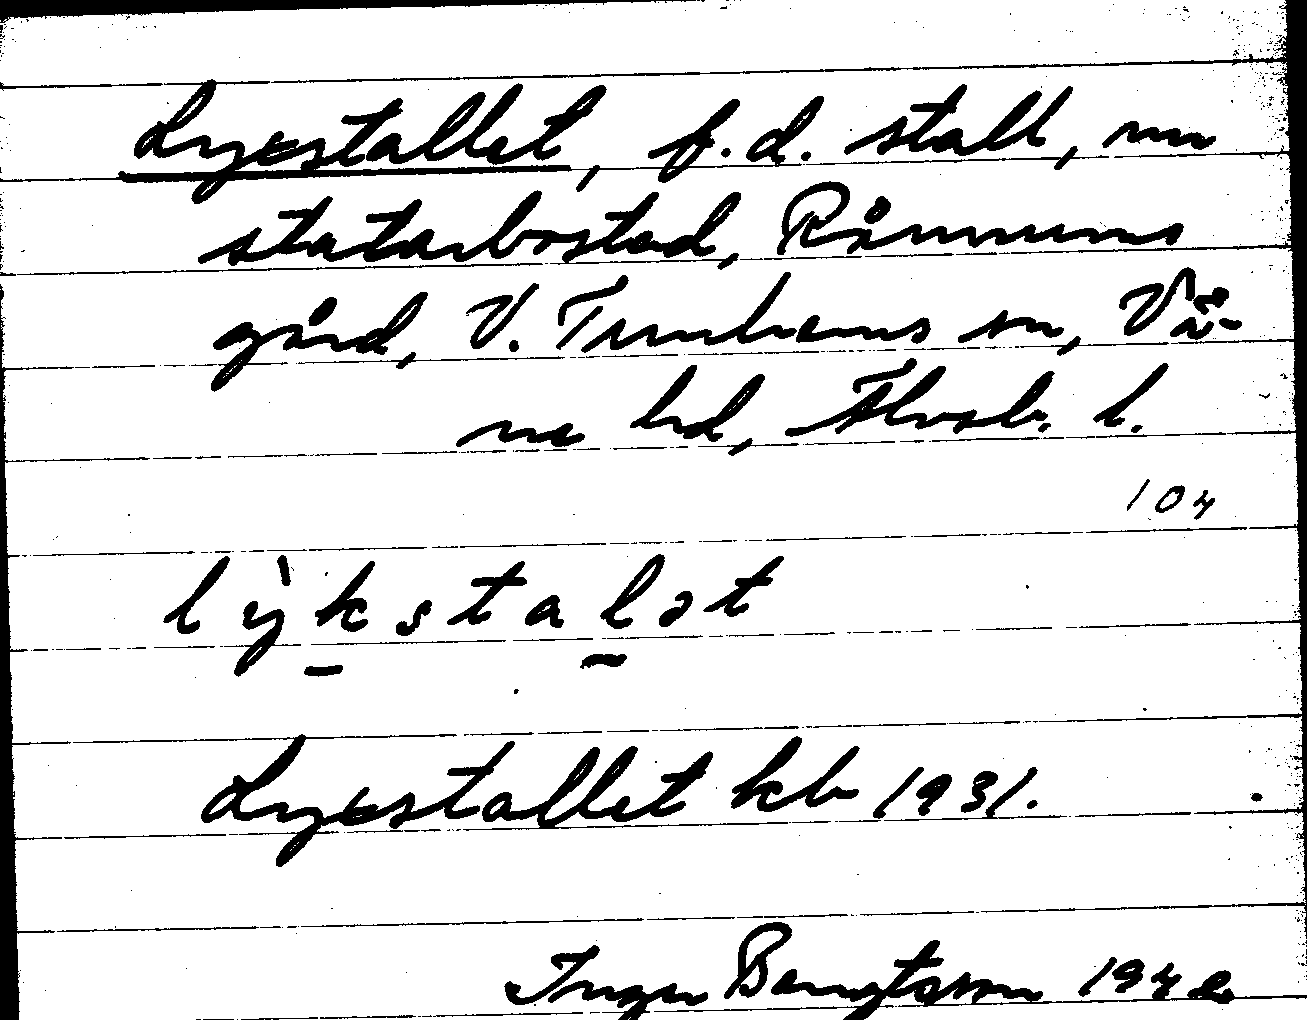 Lyxstallet, f.d. stall, nu
statarbostad, Rånnums
gård, V. Tunhems sn, Vä-
ne hd, Älvsb. l.
104
lỳkstalət
Lyxstallet kb 1931.
Inger Bengtsson 1942